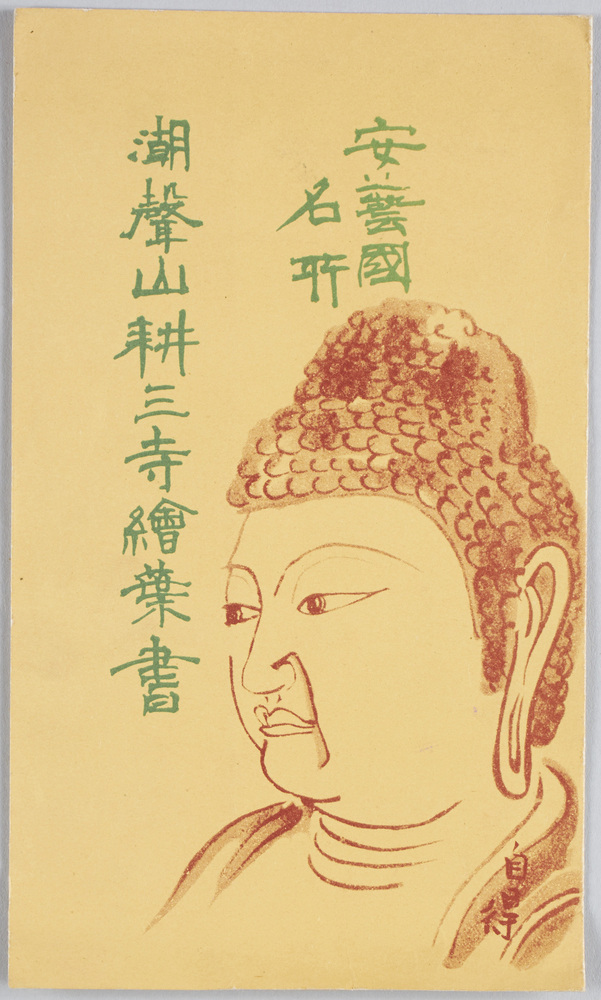 安藝國
名所
潮聲山耕三寺繪葉書
自得